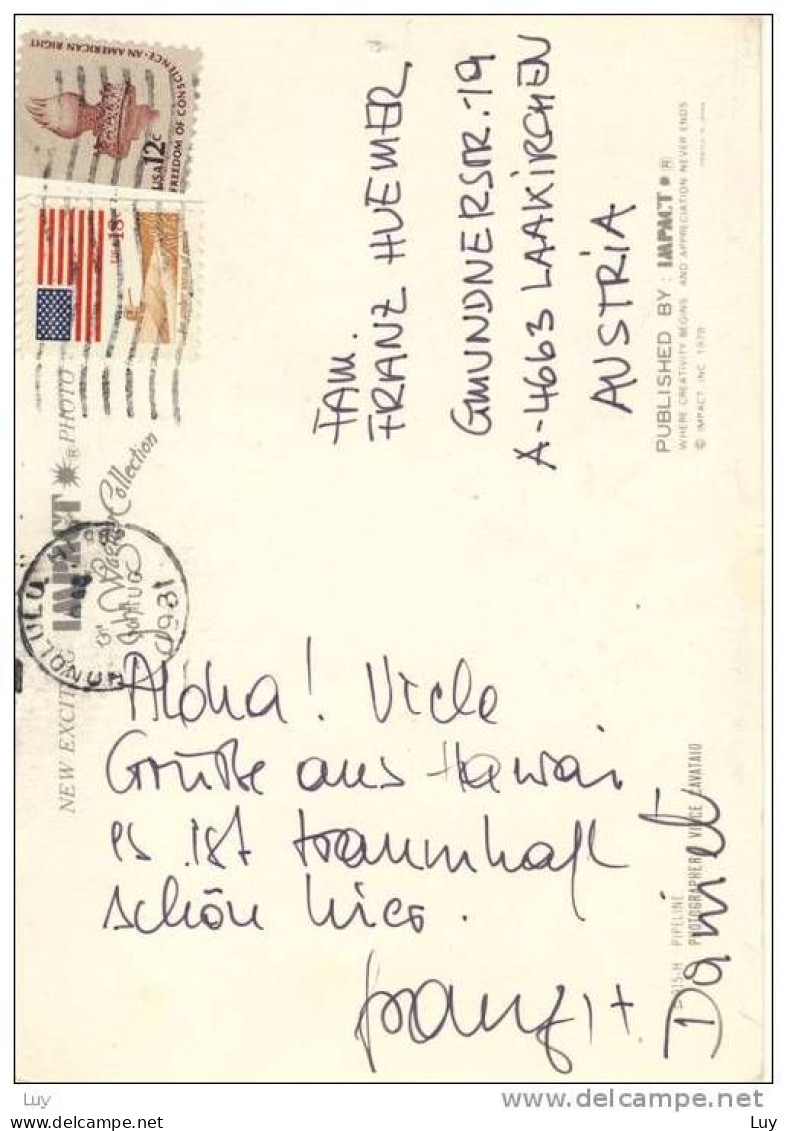 USA 12c
FREEDOM OF CONSCIENCE - AN AMERICAN RIGHT
USA 18c
NEW EXCIT
IMPACT ® PHOTO
Collection
HONOLULU
AUG
1981
FAM.
FRANZ HUEMER
GMUNDNERSTR. 19
A-4663 LAAKIRCHEN
AUSTRIA
Aloha! Viele
Grüße aus Hawai
es ist traumhaft
schön hier.
Franz +
Daniel
PIPELINE
PHOTOGRAPHER: VINCE CAVATAIO
PUBLISHED BY: IMPACT ®
WHERE CREATIVITY BEGINS AND APPRECIATION NEVER ENDS
© IMPACT, INC. 1978
PRINTED IN JAPAN
Luy
Luy
Luy
Luy
www.delcampe.net